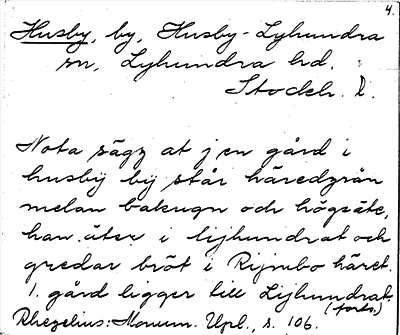 4.
Husby, by, Husby-Lyhundra
sn, Lyhundra hd.
Stockh. l.
Nota sägz at j en gård i
husbij bij står häredgrän
melan bakugn och högsäte,
han äter i lijhundrat och
gredar bröt i Rijmbo häret.
1. gård ligger till Lijhundrat.
(forts.)
Rhezelius: Monum. Upl., s. 106.